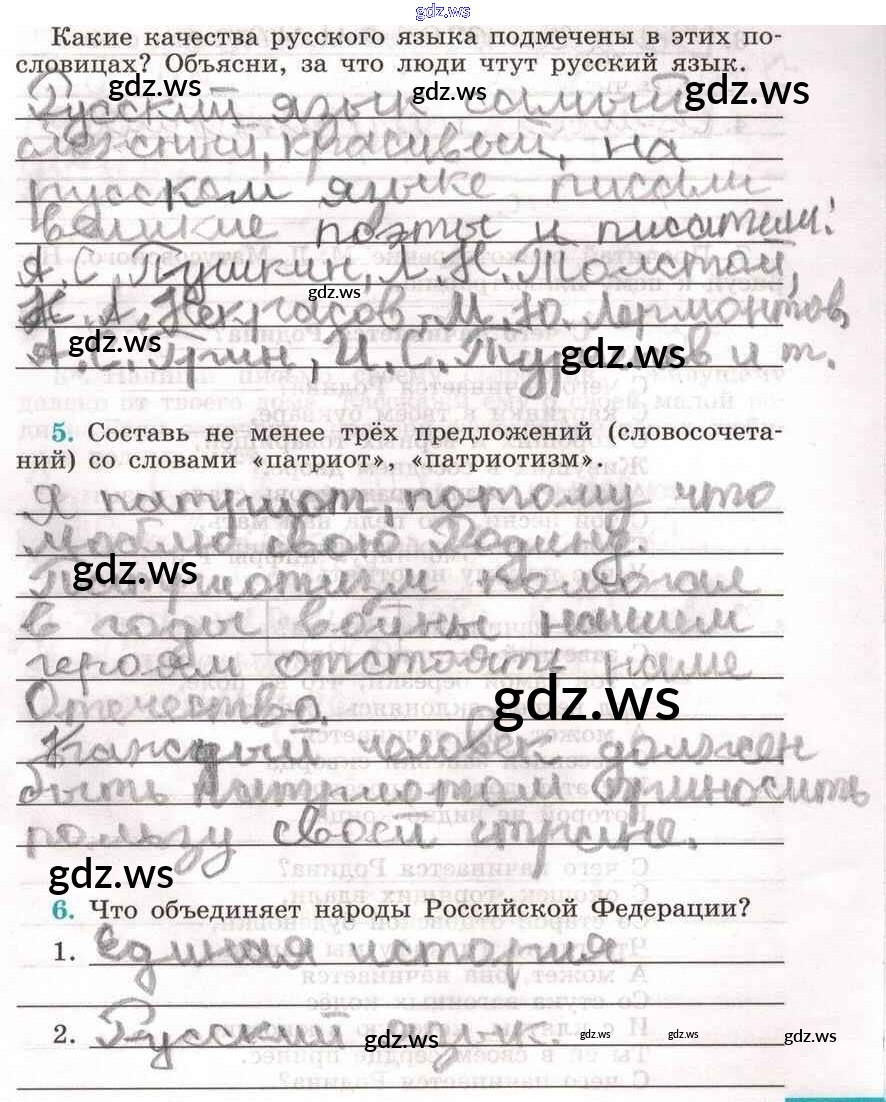 gdz.ws
Какие качества русского языка подмечены в этих по-
словицах? Объясни, за что люди чтут русский язык.
gdz.ws gdz.ws gdz.ws
Русский язык самый
сложный, красивый, на
русском языке писали
великие поэты и писатели:
А.С.Пушкин, Л.Н.Толстой,
gdz.ws
Н.А.Некрасов, М.Ю.Лермонтов,
gdz.ws gdz.ws
А.С.Грин, И.С.Тургенев и т.
5. Составь не менее трёх предложений (словосочета-
ний) со словами «патриот», «патриотизм».
Я патриот, потому что
люблю свою Родину.
gdz.ws gdz.ws
Патриотизм помогал
в годы войны нашим
героям отстоять наше
gdz.ws
Отечество.
Каждый человек должен
быть патриотом приносить
пользу своей стране.
gdz.ws
6. Что объединяет народы Российской Федерации?
1. Единая история
2. Русский яз-к.
gdz.ws gdz.ws gdz.ws gdz.ws